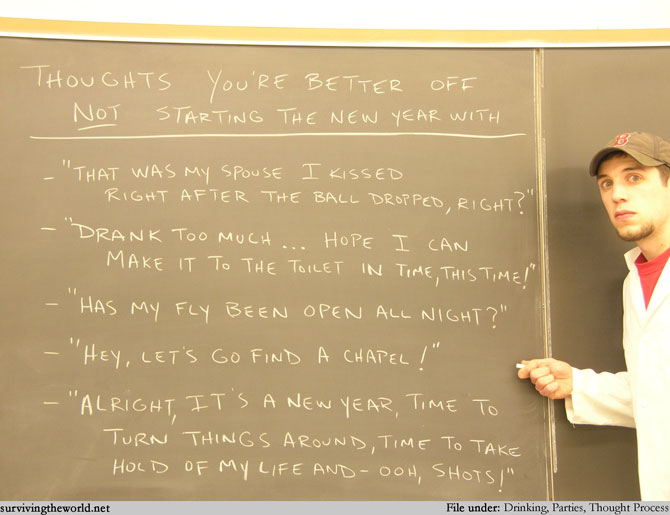 THOUGHTS YOU'RE BETTER OFF
NOT STARTING THE NEW YEAR WITH
- "THAT WAS MY SPOUSE I KISSED
RIGHT AFTER THE BALL DROPPED, RIGHT?"
- "DRANK TOO MUCH ... HOPE I CAN
MAKE IT TO THE TOILET IN TIME, THIS TIME!"
- "HAS MY FLY BEEN OPEN ALL NIGHT?"
- "HEY, LET'S GO FIND A CHAPEL!"
- "ALRIGHT, IT'S A NEW YEAR, TIME TO
TURN THINGS AROUND, TIME TO TAKE
HOLD OF MY LIFE AND - OOH, SHOTS!"
B
survivingtheworld.net
File under: Drinking, Parties, Thought Process